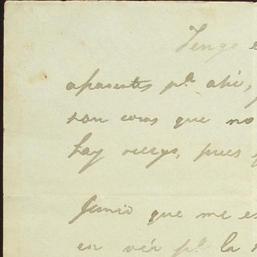 Tengo e
aparentes pª ahi,
son cosas que no
hay
pues
que me es
en ver pª la